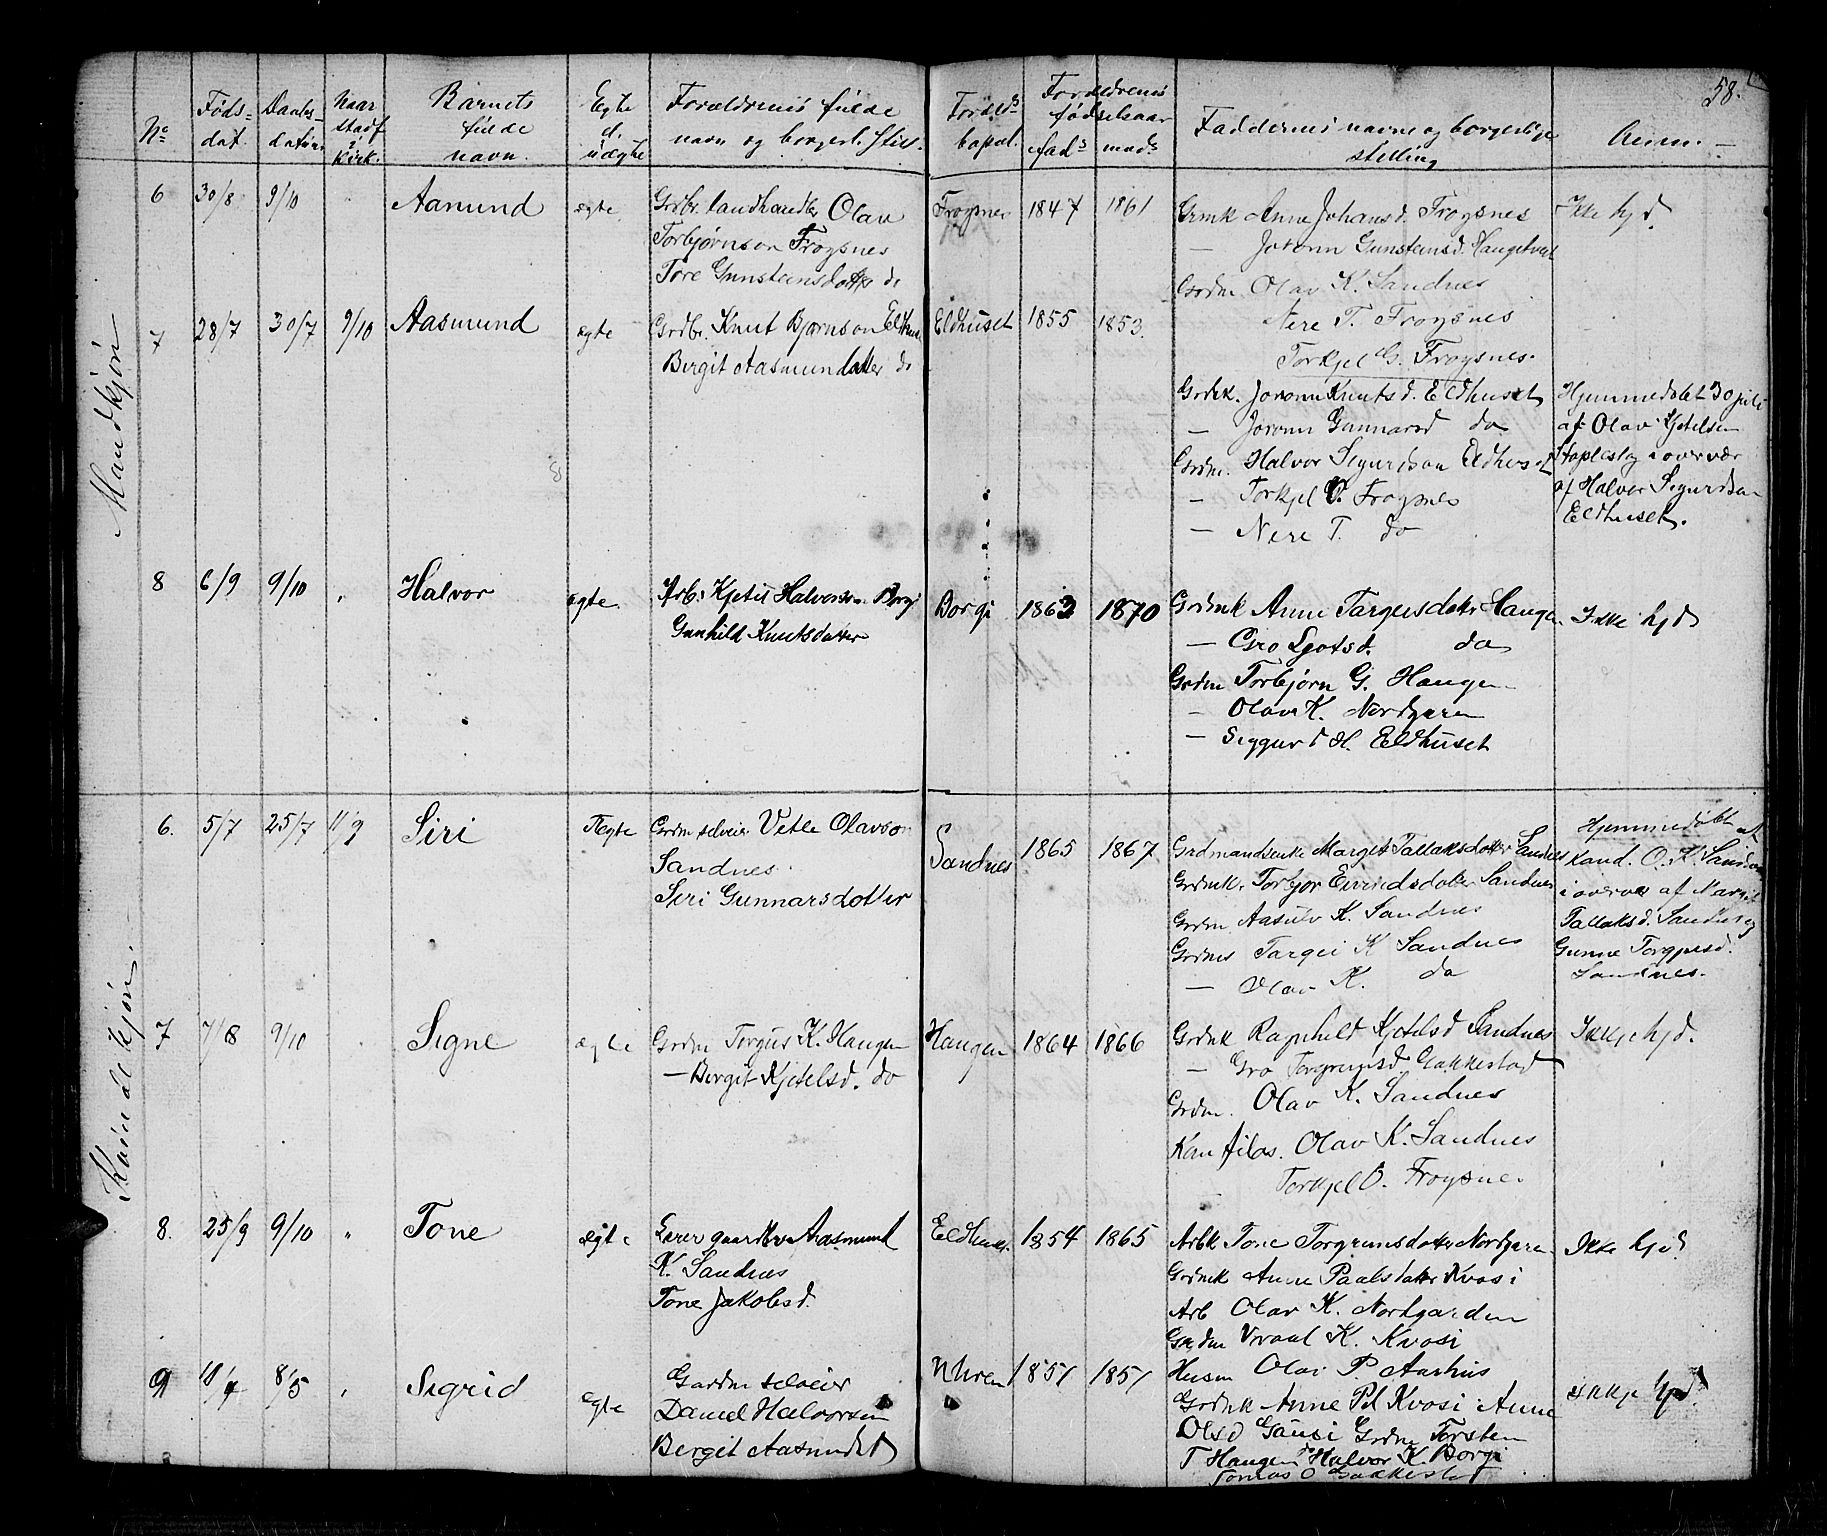 58.
No
Føds-
dat.
Daabs-
datum
Naar
stadf
i
Kirk.
Barnets
fulde
navn.
Egte
el.
uægte
Forældrenes fulde
navn og borgerl. still.
Foræld.s
bopæl.
Forældrenes
fødselsaar
fads
mods
Faddernes navne og borgerlige
stilling
Anm.
Mandkjøn
6 30/8 9/10 Aamund ægte
Grdbr. landhandler Olav
Torbjørnson Frøysnes
Tore Gunsteinsdotter do
Froysnes 1847 1861
Grmk Anne Johansd. Froysnes
— Joronn Gunsteinsd. Haugetveit
Grdm. Olav K. Sandnes
Nere T. Froysnes
Torkjel G. Froysnes.
Ikke hjd.
7 28/7 30/7 9/10 Aasmund ægte
Grdbr. Knut Bjørnson Eldhus
Birgit Aasmundsdatter do
Eldhuset 1855 1853.
Grdmk. Joronn Knutsd. Eldhuset
— Joronn Gunnarsd do
Grdm. Halvor Sigurdson Eldhuset
— Torkjel V. Froysnes
— Nere T. do
Hjemmedøbt 30 juli
af Olav Kjetilsen
i overvær
af Halvor Sigurdson
Eldhuset.
8 6/9 9/10 " Halvor ægte.
Arb. Kjetil Halvorson Borgi
Gunhild Knutsdotter
Borgi 1863 1870
Grdmk Anne Targeisdotter Haugen
— Gro Ljotsd. do
Grdm Torbjørn G. Haugen
— Olav K. Nordgaren
— Siggurd H. Eldhuset
Ikke hjd
Kvindekjøn.
6. 5/7 25/7 11/9 Siri Ægte
Grdm selveier Vetle Olavson
Sandnes
Siri Gunnarsdotter
Sandnes 1865 1867
Grdmandsenke Margit Tallaksdotter Sandnes
Grdmk. Torbjør Eivindsdotter Sandnes
Grdm. Aasulv K. Sandnes
Grdm Targei K Sandnes
— Olav K. do
Hjemmedøbt af
Kand. O. K. Sandnes
i overvær af Margit
Tallaksd. Sandnes og
Gunne Torgjusd.
Sandnes.
7 7/8 9/10 Signe ægte
Grdm Torgus K. Haugen
— Bergit Kjetelsd. do
Haugen 1864 1866
Grdmk Ragnhild Kjetelsd Sandnes
— Gro Torgrimsd. Gakkestad
Grdm. Olav K. Sandnes
Kan filos. Olav K. Sandnes
Torkjel O. Froysnes
Ikkje hjd.
8. 25/9 9/10 " Tone ægte
Lærer gaardbr. Aasmund
K. Sandnes
Tone Jakobsd.
Eldhuset 1854 1865
Arbk Tone Torgrimsdotter Nordgare
Grdmk Anne Paalsdotter Kvosi
Arb Olav K. Nordgarden
Grdm Vraal K. Kvosi
Husm Olav P. Aarhus
Ikke hjd.
9 8/5 " Sigrid ægte
Gardm selveier
Daniel Halvorsen
Bergit Aasmundsd
1851 1851
Grdmk Anne Pd Kvosi Anne
Olsd Gausi Grdm Torsten
T Haugen do Halvor K. Borgi
Tomas O Gakkestad
ikkje hjd.